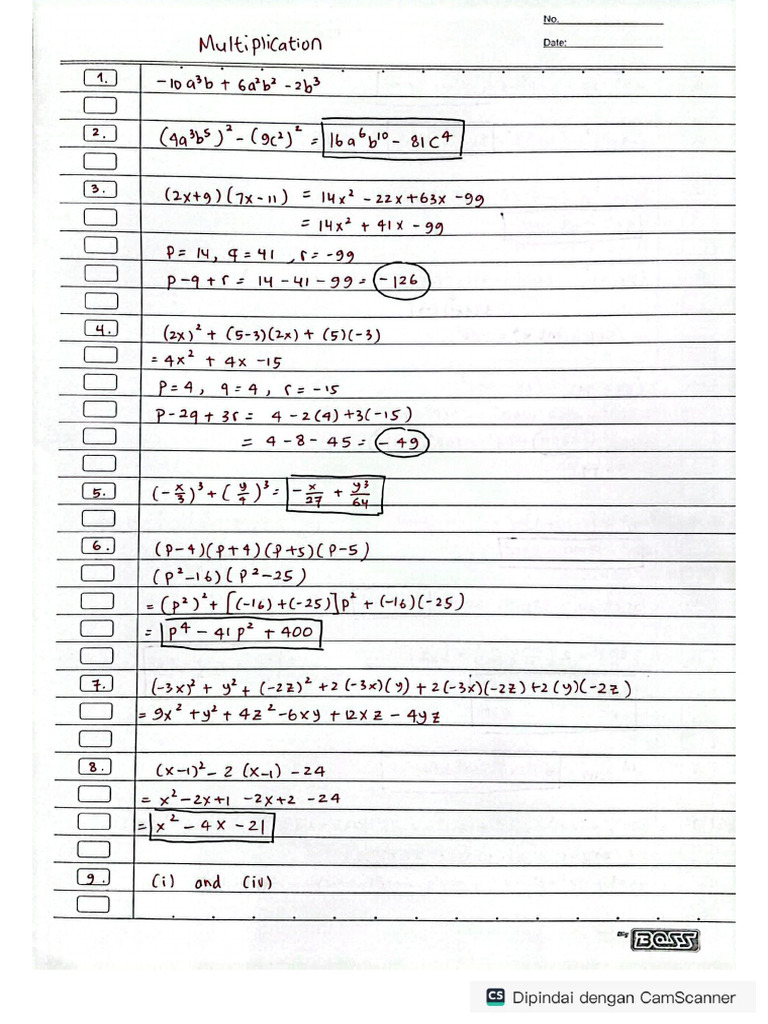 No.
Multiplication
Date:
1. -10a³b + 6a²b² - 2b³
2. (4a³b⁵)² - (9c²)² = 16a⁶b¹⁰ - 81c⁴
3. (2x+9)(7x-11) = 14x² - 22x + 63x - 99
= 14x² + 41x - 99
P = 14, q = 41, r = -99
P - q + r = 14 - 41 - 99 = -126
4. (2x)² + (5-3)(2x) + (5)(-3)
= 4x² + 4x - 15
P = 4, q = 4, r = -15
P - 2q + 3r = 4 - 2(4) + 3(-15)
= 4 - 8 - 45 = -49
5. (-x/3)³ + (y/4)³ = -x/27 + y³/64
6. (P-4)(P+4)(P+5)(P-5)
(P²-16)(P²-25)
= (P²)² + [(-16)+(-25)]P² + (-16)(-25)
= P⁴ - 41P² + 400
7. (-3x)² + y² + (-2z)² + 2(-3x)(y) + 2(-3x)(-2z) + 2(y)(-2z)
= 9x² + y² + 4z² - 6xy + 12xz - 4yz
8. (x-1)² - 2(x-1) - 24
= x² - 2x + 1 - 2x + 2 - 24
= x² - 4x - 21
9. (i) and (iv)
Big BOSS
CS Dipindai dengan CamScanner